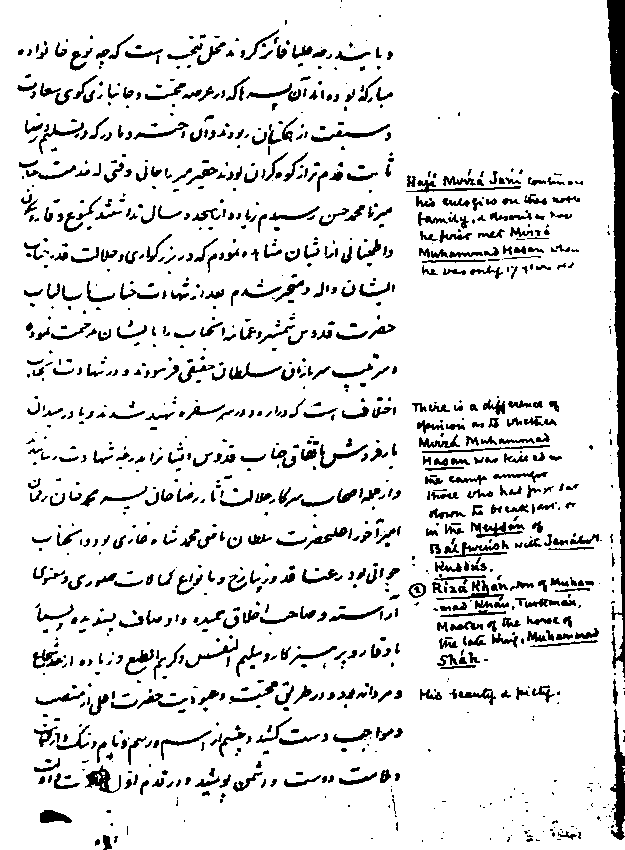 و باینذرجه علیا فائز کروند محل تعجب است که چه نوع خانواده
مبارکهٔ بوده‌اند آن پسرها که در عرصه محبت و جانبازی گوی سعادت
و سبقت از همگنان ربودند و آن و مادر که در تسلیم و رضا
ثابت قدم‌تر از کوه گران بودند حقیر میرزا جانی وقتی که خدمت جناب
میرزا محمد حسن رسیدم زیاده از هیجده سال نداشتند یکنوع وقار
و اطمینانی از ایشان مشاهده نمودم که در بزرگواری و جلالت قدر جناب
ایشان واله و متحیر شدم بعد از شهادت جناب باب الباب
حضرت قدوس شمشیر و عمامه انجناب را بایشان مرحمت نموده
و سرباران سلطان حقیقی فرمودند و در شهادت انجناب
اختلاف است که در اردو در سر سفره شهید شدند و یا در میدان
بارفروش باتفاق جناب قدوس ایشانرا بدرجه شهادت
و از جمله اصحاب سرکار جلالت آثار رضا خان پسر محمد خان ترکمان
امیر آخور اعلیحضرت سلطان ماضی محمد شاه غازی بود و انجناب
جوانی بود رعنا قد و زیبا رخ و بانواع کمالات صوری و معنوی
آراسته و صاحب اخلاق حمیده و اوصاف پسندیده بسیار
با وقار و پرهیزکار و سلیم النفس و کریم الطبع و زیاده از حد شجاع
و مردانه بود و در طریق محبت و عبودیت حضرت اعلی از منصب
و مواجب دست کشید و چشم از اسم و رسم و نام و ننگ
و ملامت دوست و دشمن پوشید و در قدم اول
Hájí Mírzá Jání continues
his eulogies on this noble
family, & describes how
he first met Mírzá
Muhammad Hasan when
he was only 17 years old
There is a difference of
opinion as to whether
Mírzá Muhammad
Hasan was killed in
the camp amongst
those who had just sat
down to breakfast, or
in the Meydán of
Bárfurúsh with Jenáb-i-
Kuddús.
② Rizá Khán, son of Muham-
mad Khán, Turkmán,
Master of the horse of
the late king, Muhammad
Sháh.
His beauty & piety.